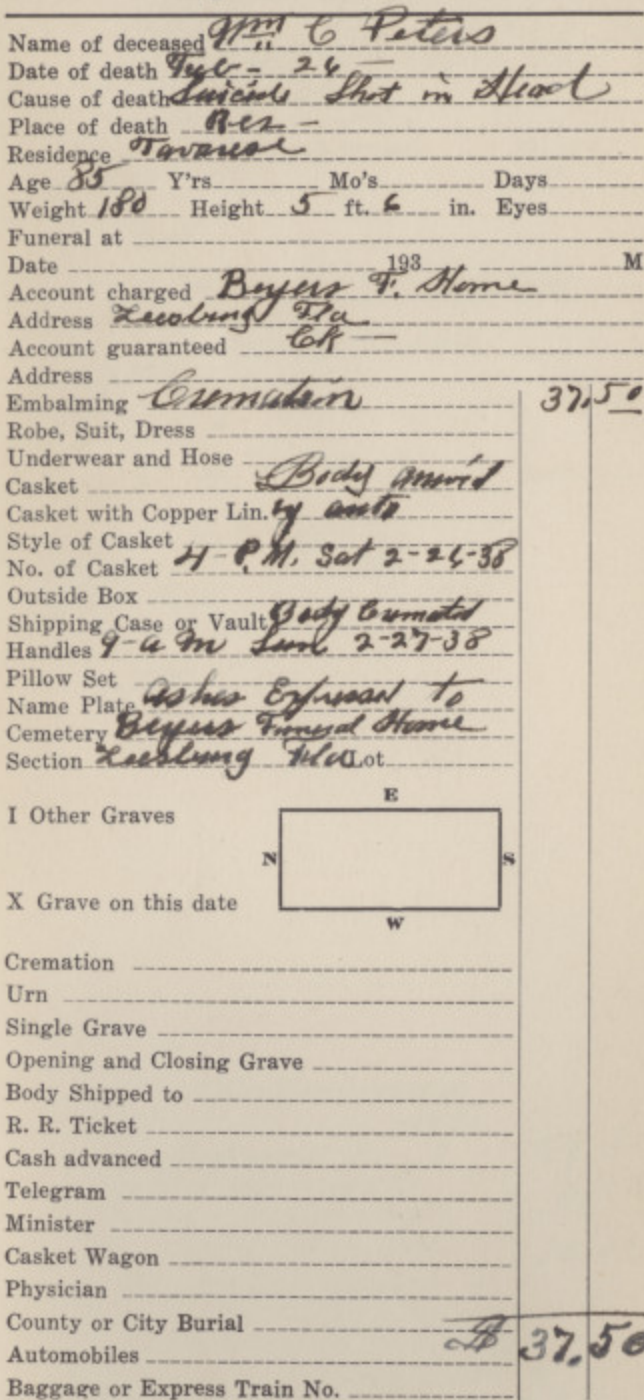 Name of deceased Wm C Peters
Date of death Feb - 26 —
Cause of death Suicide Shot in Head
Place of death Res —
Residence Tavares
Age 85 Y'rs Mo's Days
Weight 180 Height 5 ft. 6 in. Eyes
Funeral at
Date 193 M
Account charged Beyers F. Home
Address Leesburg Fla
Account guaranteed Ck —
Address
Embalming Cremation 37.50
Robe, Suit, Dress
Underwear and Hose
Casket Body arriv'd
Casket with Copper Lin. by auto
Style of Casket
No. of Casket 4 - P.M. Sat 2-26-38
Outside Box
Shipping Case or Vault Body Cremated
Handles 9 - a m Sun 2-27-38
Pillow Set
Name Plate Ashes Expressed to
Cemetery Beyers Funeral Home
Section Leesburg Fla Lot
E
I Other Graves
N S
X Grave on this date
W
Cremation
Urn
Single Grave
Opening and Closing Grave
Body Shipped to
R. R. Ticket
Cash advanced
Telegram
Minister
Casket Wagon
Physician
County or City Burial
Automobiles $ 37.50
Baggage or Express Train No.